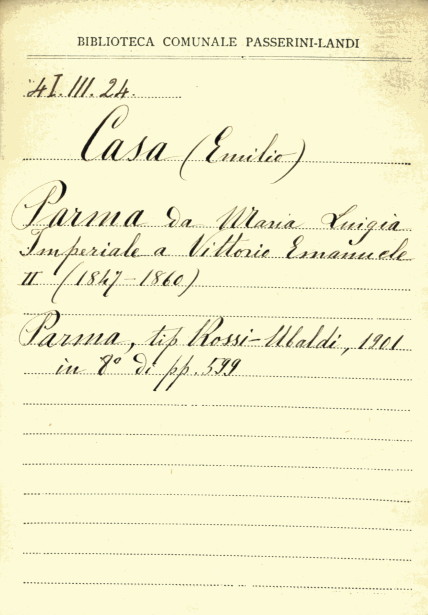 BIBLIOTECA COMUNALE PASSERINI-LANDI
4I.III.24.
Casa (Emilio)
Parma da Maria Luigia
Imperiale a Vittorio Emanuele
II (1847-1860)
Parma, tip Rossi-Ubaldi, 1901
in 8° di pp. 599